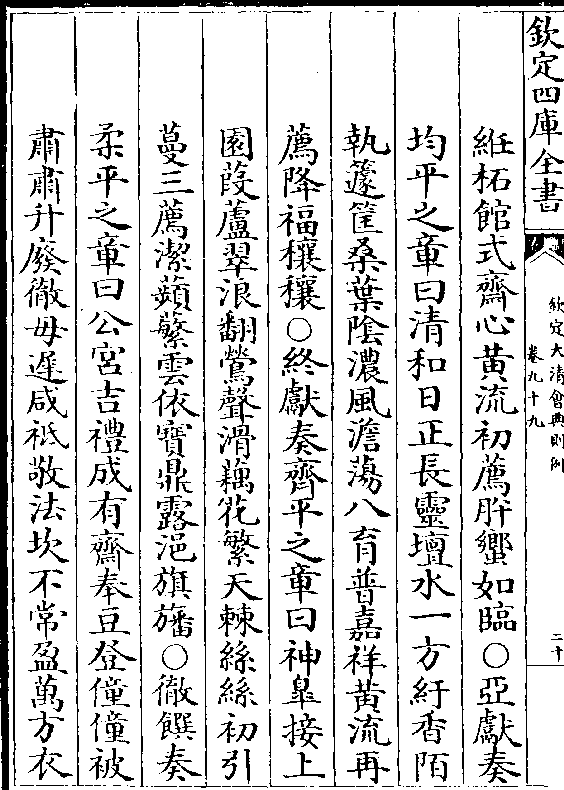 欽定四庫全書
欽定大清會典則例
卷九十九
二十
紝柘館式齋心黃流初薦肸蠁如臨○亞獻奏
均平之章曰清和日正長靈壇水一方紆香陌
執籧筐桑葉陰濃風澹蕩八育普嘉祥黃流再
薦降福穰穰○終獻奏齊平之章曰神臯接上
園葭蘆翠浪翻鶯聲滑藕花繁天棘絲絲初引
蔓三薦潔蘋蘩雲依寶鼎露浥旗旛○徹饌奏
柔平之章曰公宮吉禮成有齋奉豆登僮僮被
肅肅升廢徹毋遲咸祗敬法坎不常盈萬方衣